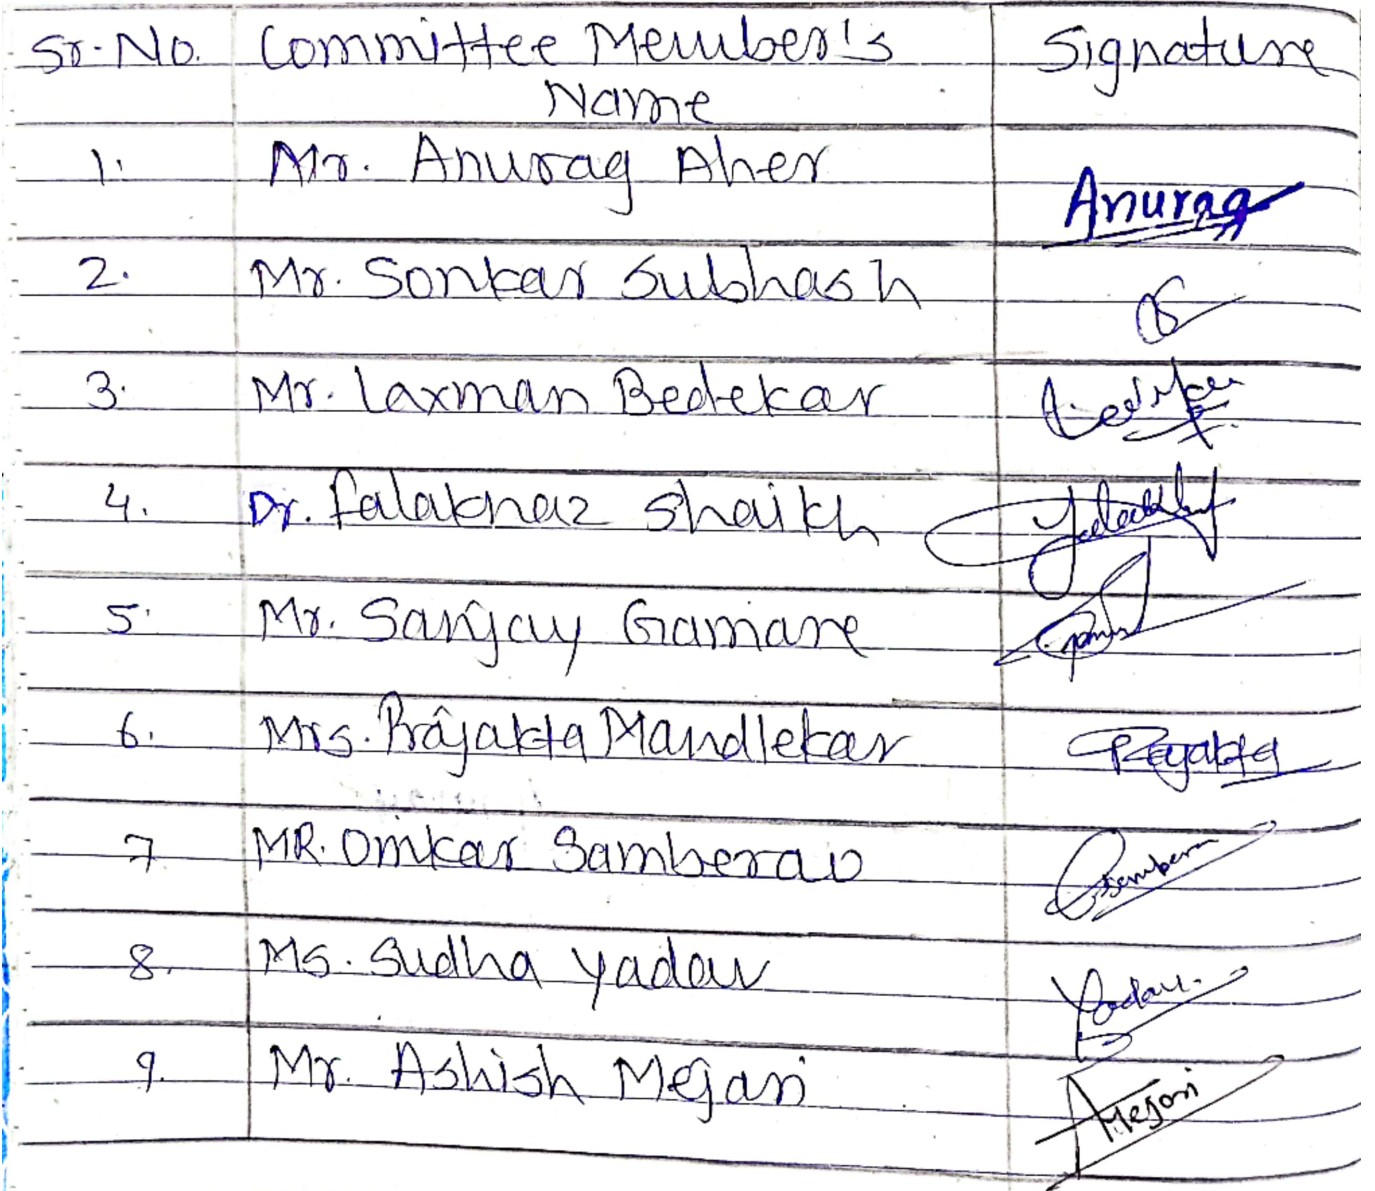 Sr. No. Committee Member's Signature
Name
1. Mr. Anurag Aher Anurag
2. Mr. Sonkar Subhash
3. Mr. Laxman Bedekar
4. Dr. Falaknaz Shaikh
5. Mr. Sanjay Gamane
6. Mrs. Prajakta Mandlekar Prajakta
7 MR. Omkar Samberao
8. Ms. Sudha Yadav Yadav.
9. Mr. Ashish Mejari AMejari